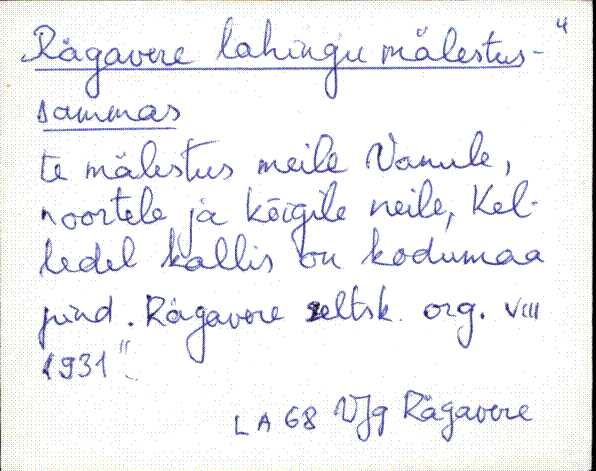 4
Rägavere lahingu mälestus-
sammas
te mälestus meile Vanule,
noortele ja kõigile neile, Kel-
ledel kallis on kodumaa
pind. Rägavere seltsk. org. VIII
1931"
LA 68 VJg Rägavere